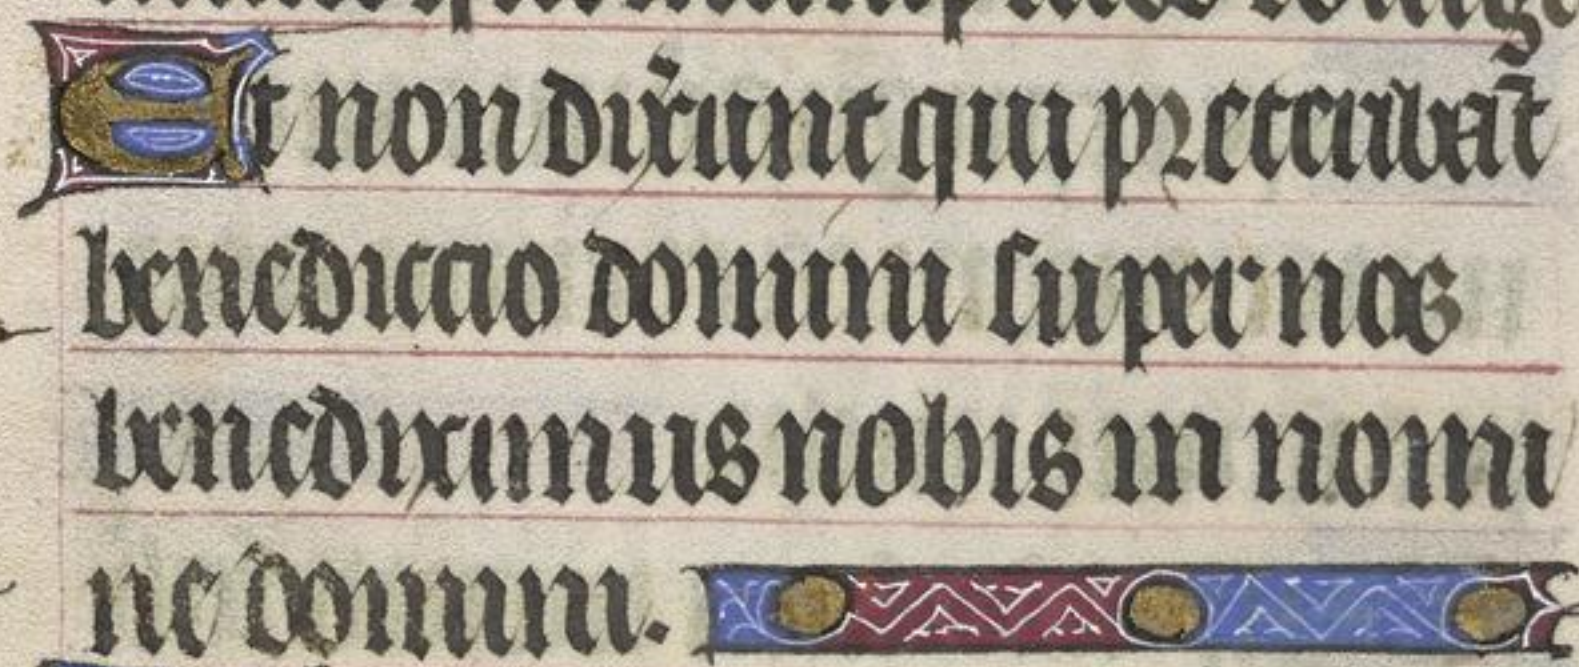 Et non dix̃unt qui preteribãt
benediccio domini super nos
benediximus nobis in nomi
ne domini.